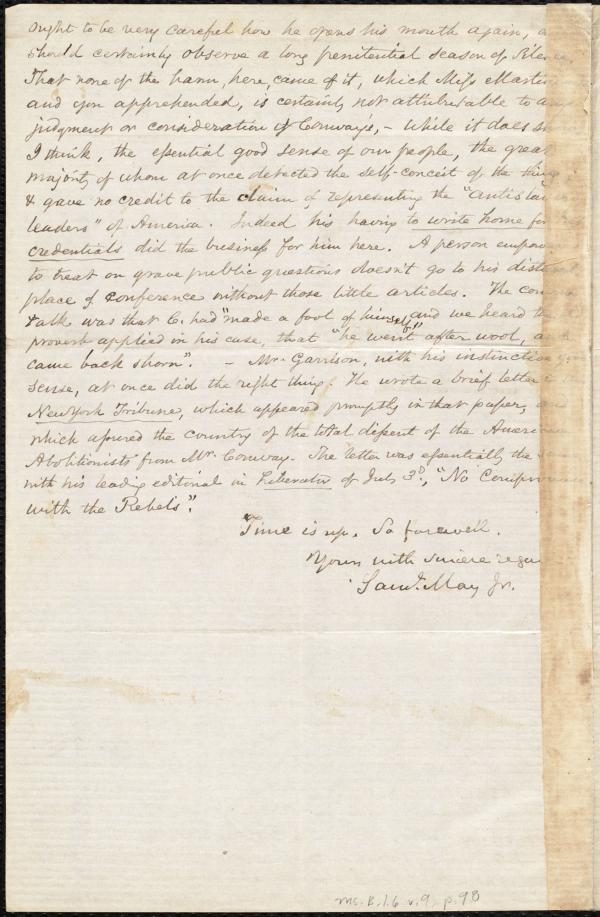 ought to be very careful how he opens his mouth again, a
should certainly observe a long penitential season of Silence.
That none of the harm, here, came of it, which Miss Martin
and you apprehended, is certainly not attributable to any
judgment or consideration of Conway's, – while it does s
I think, the essential good sense of our people, the great
majority of whom at once detected the self-conceit of the thing
& gave no credit to the claim of representing the "antislavery
leaders" of America. Indeed his having to write home for
credentials did the business for him here. A person empow
to treat on grave public questions doesn't go to his distant
place of conference without those little articles. The common
talk was that C. had "made a fool of himself," and we heard the
proverb applied in his case, that "he went after wool, and
came back shorn". – Mr. Garrison, with his instinctive good
sense, at once did the right thing. He wrote a brief letter
New York Tribune, which appeared promptly in that paper, and
which assured the country of the total dissent of the American
Abolitionists from Mr. Conway. The letter was essentially the same
with his leading editorial in Liberator of July 3d., "No Compromise
with the Rebels".
Time is up. So farewell.
Yours with sincere regard
Saml. May Jr.
Ms. B.1.6 v.9, p.98